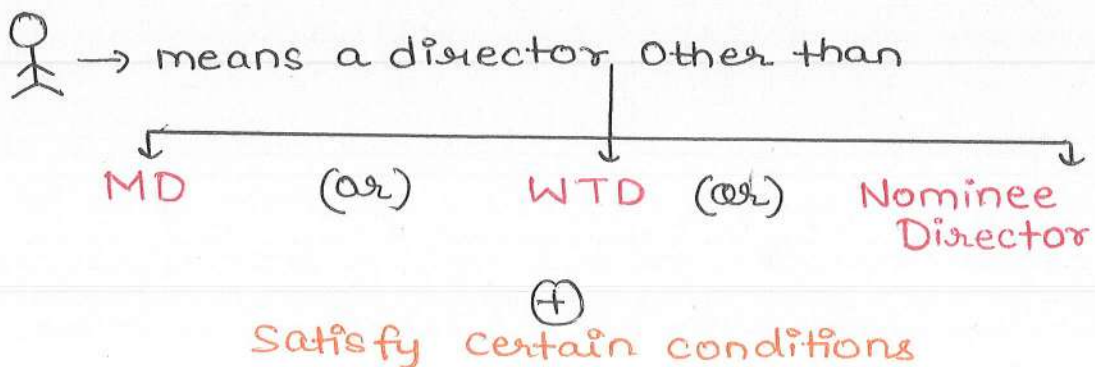 → means a director other than
MD (or) WTD (or) Nominee Director
+
Satisfy certain conditions